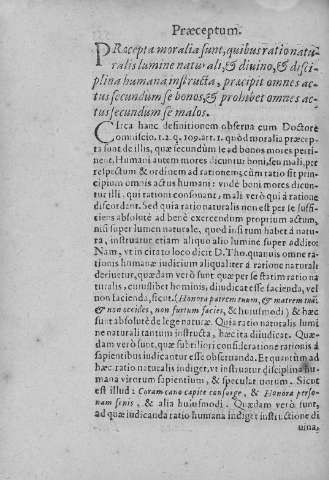 Præceptum.
PRæcepta moralia sunt, quibus ratio natu-
ralis lumine naturali, & diuino, & disci-
plina humana instructa, præcipit omnes ac-
tus secundum se bonos, & prohibet omnes ac-
tus secundum se malos.
Circa hanc definitionem obserua cum Doctore
communi cio. 1. 2. q. 100. art. 1. quòd moralia præcep-
ta sunt de illis, quæ secundùm se ad bonos mores perti-
nent. Humani autem mores dicuntur boni, seu mali, per
respectum & ordinem ad rationem, cùm ratio sit prin-
cipium omnis actus humani: vndè boni mores dicun-
tur illi, qui rationi consonant, mali verò qui à ratione
discordent. Sed quia ratio naturalis non est per se suffi-
ciens absolutè ad benè exercendum proprium actum,
nisi super lumen naturale, quod insitum habet à natu-
ra, instruatur etiam aliquo alio lumine super addito:
Nam, vt in citato loco dicit D. Tho. quamuis omne ra-
tionis humanæ iudicium aliqualiter à ratione naturali
deriuetur, quædam verò sunt quæ per se statim ratio na-
turalis, cuiuslibet hominis, diiudicat esse facienda, vel
non facienda, sicut. (Honora patrem tuum, & matrem tuã:
& non occides, non furtum facies, & huiusmodi) & hæc
sunt absolutè de lege naturæ. Quia ratio naturalis lumi
ne naturali tantum instructa, hæc ita diiudicat. Quæ-
dam verò sunt, quæ subtiliori consideratione rationis à
sapientibus iudicantur esse obseruanda. Et quantum ad
hæc ratio naturalis indiget, vt instruatur disciplina hu-
mana virorum sapientium, & speculatiuorum. Sicut
est illud: Coram cano capite consurge, & Honora perso-
nam senis, & alia huiusmodi. Quædam verò sunt,
ad quæ iudicanda ratio humana indiget instructione di
uina,